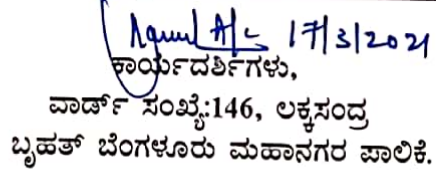 17/3/2021
ಕಾರ್ಯದರ್ಶಿಗಳು,
ವಾರ್ಡ್ ಸಂಖ್ಯೆ:146, ಲಕ್ಕಸಂದ್ರ
ಬೃಹತ್ ಬೆಂಗಳೂರು ಮಹಾನಗರ ಪಾಲಿಕೆ.